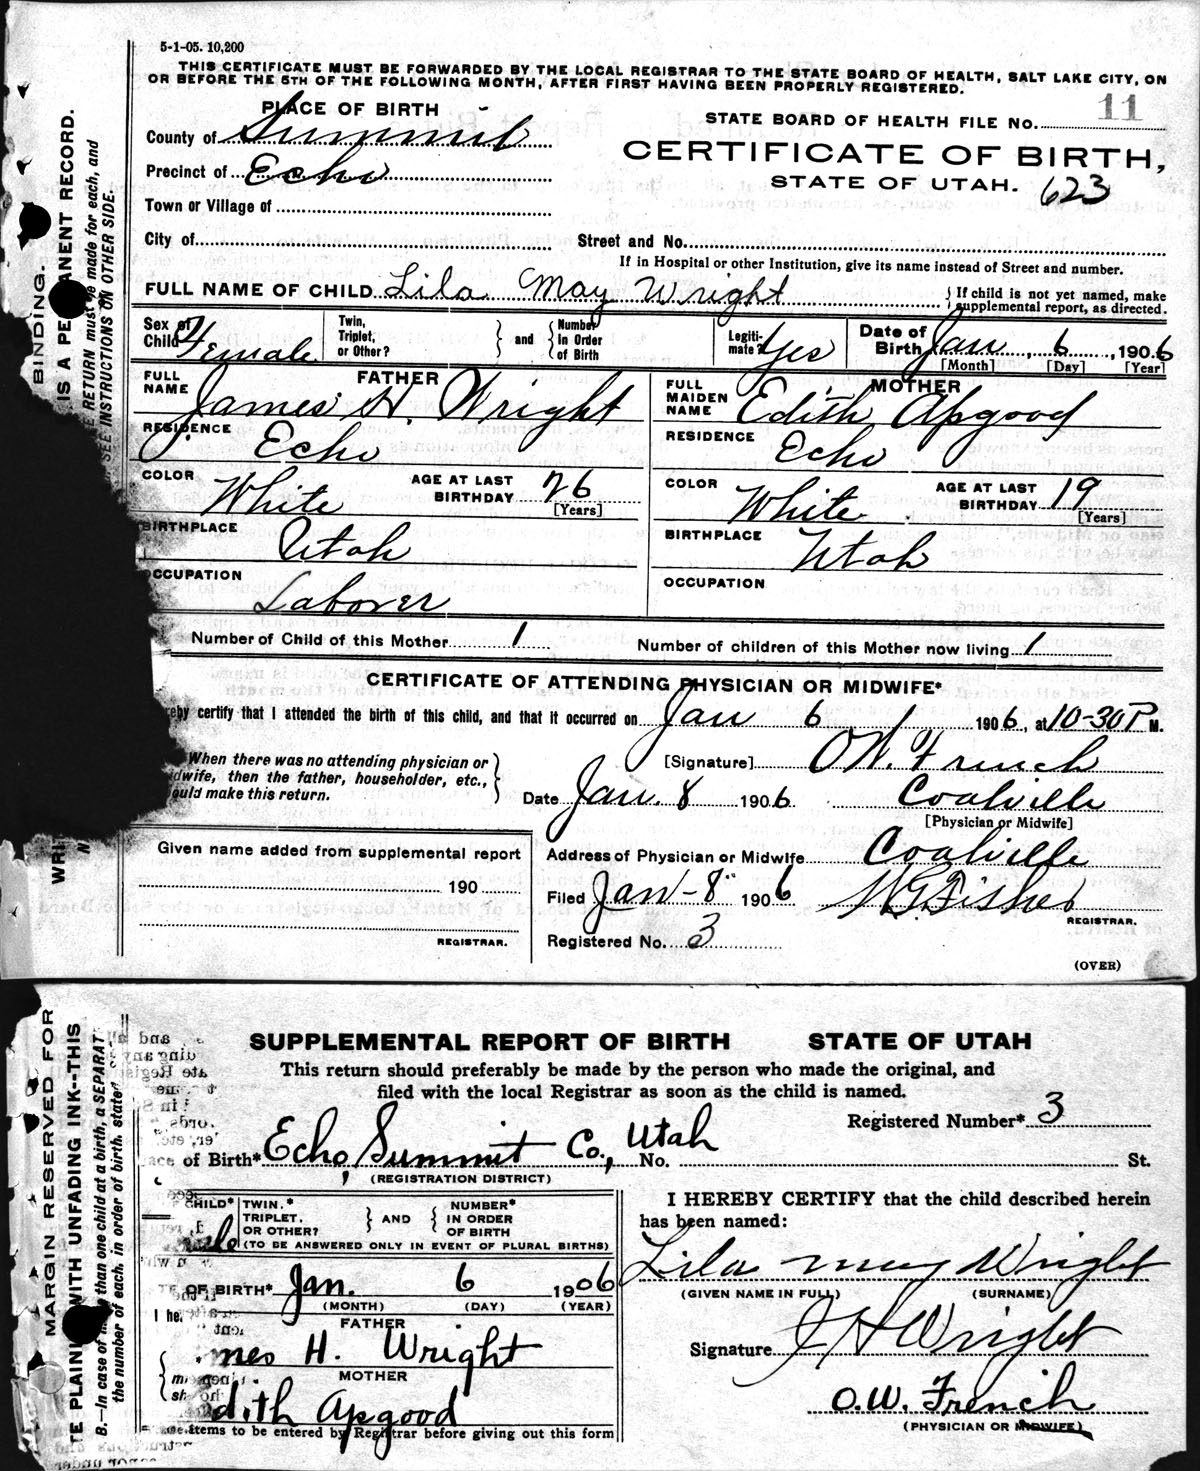 5-1-05. 10,200
THIS CERTIFICATE MUST BE FORWARDED BY THE LOCAL REGISTRAR TO THE STATE BOARD OF HEALTH, SALT LAKE CITY, ON
OR BEFORE THE 5TH OF THE FOLLOWING MONTH, AFTER FIRST HAVING BEEN PROPERLY REGISTERED.
PLACE OF BIRTH
STATE BOARD OF HEALTH FILE NO. 11
County of Summit
CERTIFICATE OF BIRTH,
Precinct of Echo
STATE OF UTAH. 623
Town or Village of
City of Street and No.
If in Hospital or other Institution, give its name instead of Street and number.
FULL NAME OF CHILD Lila May Wright } If child is not yet named, make supplemental report, as directed.
Sex of Child Female Twin, Triplet, or Other? } and { Number in Order of Birth Legiti-mate? Yes Date of Birth Jan, 6, 1906
[Month] [Day] [Year]
FULL NAME FATHER James H. Wright
FULL MAIDEN NAME MOTHER Edith Apgood
RESIDENCE Echo RESIDENCE Echo
COLOR White AGE AT LAST BIRTHDAY 26 [Years] COLOR White AGE AT LAST BIRTHDAY 19 [Years]
BIRTHPLACE Utah BIRTHPLACE Utah
OCCUPATION Laborer OCCUPATION
Number of Child of this Mother 1 Number of children of this Mother now living 1
CERTIFICATE OF ATTENDING PHYSICIAN OR MIDWIFE*
certify that I attended the birth of this child, and that it occurred on Jan 6 1906, at 10-30 P M.
When there was no attending physician or
then the father, householder, etc.,
make this return.
[Signature] O.W. French
Date Jan. 8 1906 Coalville
[Physician or Midwife]
Given name added from supplemental report
Address of Physician or Midwife Coalville
190
Filed Jan-8" 1906 W.G. Fisher
REGISTRAR.
REGISTRAR.
Registered No. 3
(OVER)
SUPPLEMENTAL REPORT OF BIRTH STATE OF UTAH
This return should preferably be made by the person who made the original, and
filed with the local Registrar as soon as the child is named.
Registered Number* 3
of Birth* Echo, Summit Co., Utah No. St.
(REGISTRATION DISTRICT)
CHILD* TWIN,* TRIPLET, OR OTHER? } AND { NUMBER* IN ORDER OF BIRTH
(TO BE ANSWERED ONLY IN EVENT OF PLURAL BIRTHS)
I HEREBY CERTIFY that the child described herein
has been named:
Lila May Wright
(GIVEN NAME IN FULL) (SURNAME)
OF BIRTH* Jan. 6 1906
(MONTH) (DAY) (YEAR)
FATHER
H. Wright
Signature J H Wright
MOTHER
Apgood
O.W. French
(PHYSICIAN OR MIDWIFE)
items to be entered by Registrar before giving out this form